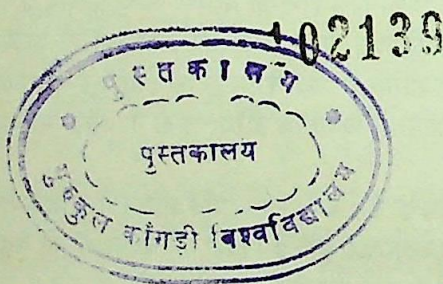 102139
पुस्तकालय
पुस्तकालय
गुरुकुल काँगड़ी विश्वविद्यालय